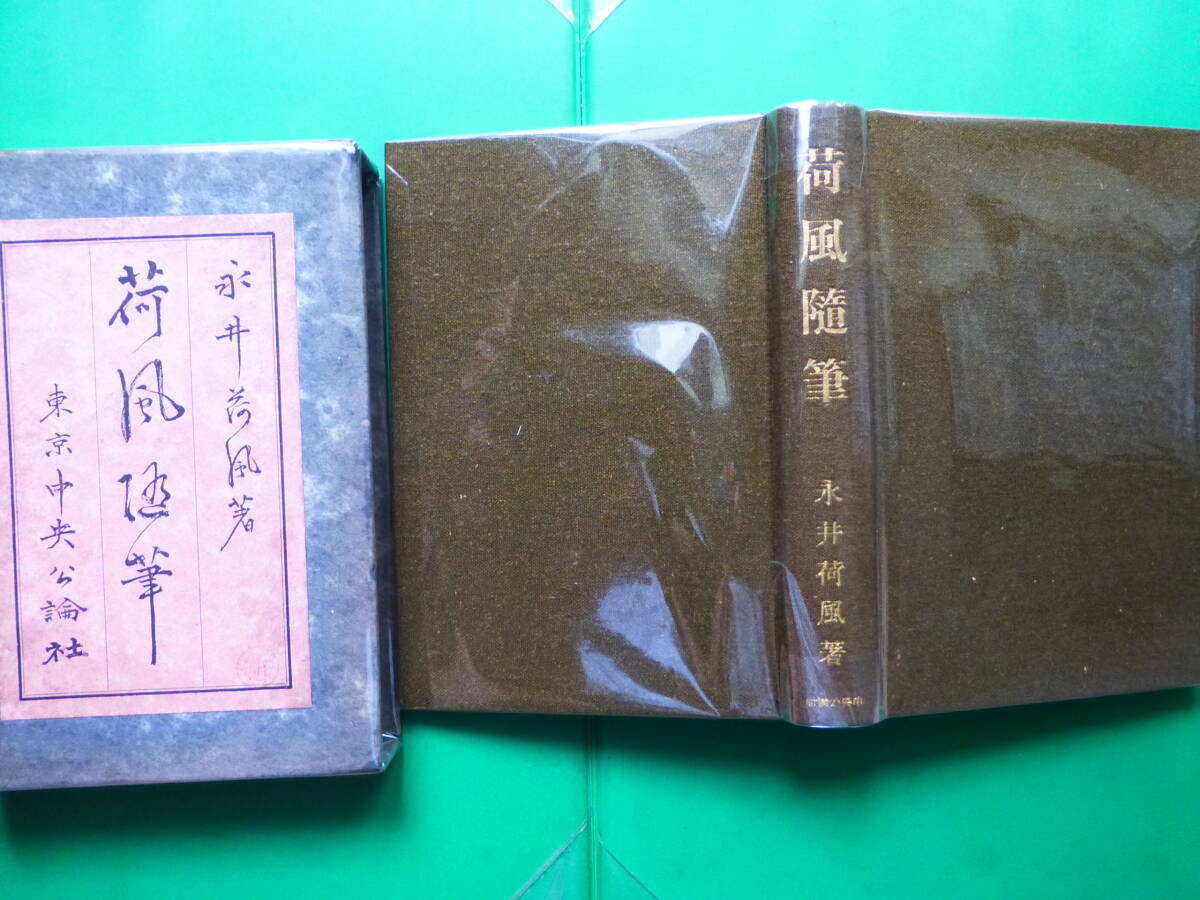 永井荷風著
荷風随筆
東京中央公論社
荷風隨筆
永井荷風著